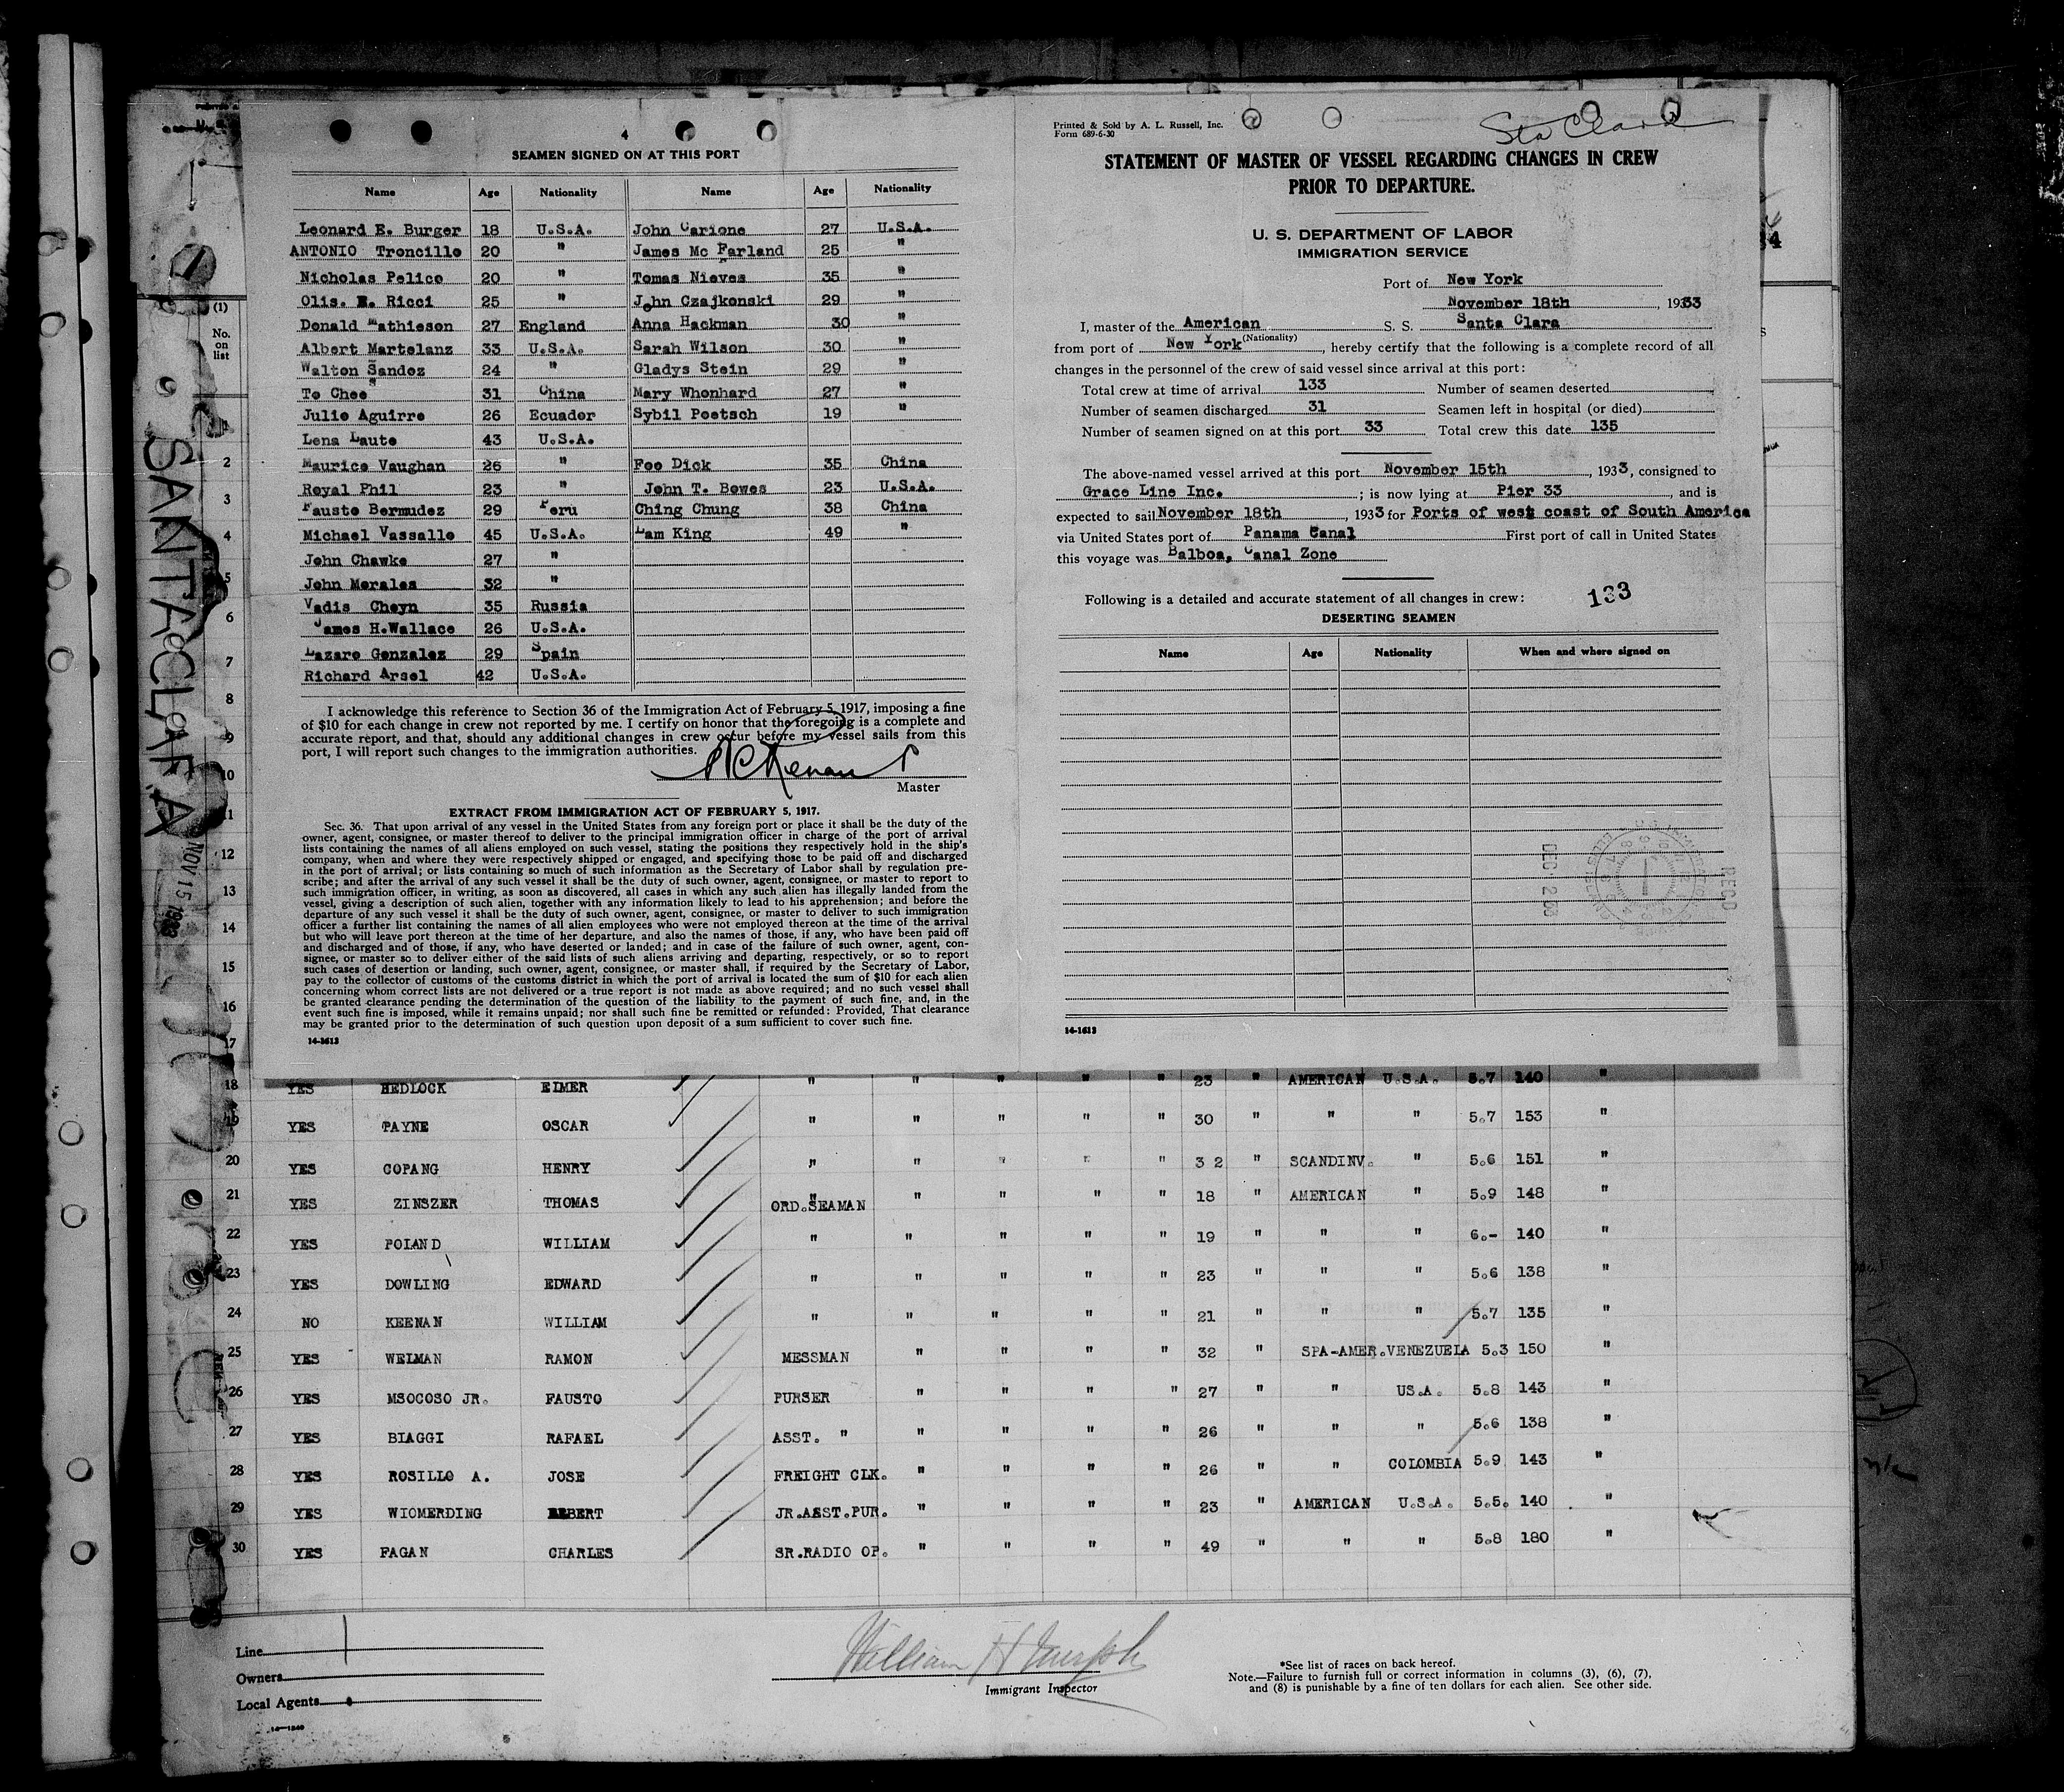 4
SEAMEN SIGNED ON AT THIS PORT
Name Age Nationality Name Age Nationality
Leonard E. Burger 18 U.S.A. John Carione 27 U.S.A.
ANTONIO Troncillo 20 " James Mc Farland 25 "
Nicholas Pelico 20 " Tomas Nieves 35 "
Olis. E. Ricci 25 " John Czajkonski 29 "
Donald Mathieson 27 England Anna Hackman 30 "
Albert Martelanz 33 U.S.A. Sarah Wilson 30 "
Walton Sandez 24 " Gladys Stein 29 "
To Chee 31 China Mary Whonhard 27 "
Julio Aguirre 26 Ecuador Sybil Poetsch 19 "
Lena Laute 43 U.S.A.
Maurice Vaughan 26 " Foo Dick 35 China
Royal Phil 23 " John T. Bowes 23 U.S.A.
Fausto Bermudez 29 Peru Ching Chung 38 China
Michael Vassallo 45 U.S.A. Lam King 49 "
John Chawke 27 "
John Morales 32 "
Vadis Cheyn 35 Russia
James H.Wallace 26 U.S.A.
Lazaro Gonzalez 29 Spain
Richard Arsel 42 U.S.A.
I acknowledge this reference to Section 36 of the Immigration Act of February 5, 1917, imposing a fine
of $10 for each change in crew not reported by me. I certify on honor that the foregoing is a complete and
accurate report, and that, should any additional changes in crew occur before my vessel sails from this
port, I will report such changes to the immigration authorities.
Master
EXTRACT FROM IMMIGRATION ACT OF FEBRUARY 5, 1917.
Sec. 36. That upon arrival of any vessel in the United States from any foreign port or place it shall be the duty of the
owner, agent, consignee, or master thereof to deliver to the principal immigration officer in charge of the port of arrival
lists containing the names of all aliens employed on such vessel, stating the positions they respectively hold in the ship's
company, when and where they were respectively shipped or engaged, and specifying those to be paid off and discharged
in the port of arrival; or lists containing so much of such information as the Secretary of Labor shall by regulation pre-
scribe; and after the arrival of any such vessel it shall be the duty of such owner, agent, consignee, or master to report to
such immigration officer, in writing, as soon as discovered, all cases in which any such alien has illegally landed from the
vessel, giving a description of such alien, together with any information likely to lead to his apprehension; and before the
departure of any such vessel it shall be the duty of such owner, agent, consignee, or master to deliver to such immigration
officer a further list containing the names of all alien employees who were not employed thereon at the time of the arrival
but who will leave port thereon at the time of her departure, and also the names of those, if any, who have been paid off
and discharged and of those, if any, who have deserted or landed; and in case of the failure of such owner, agent, con-
signee, or master so to deliver either of the said lists of such aliens arriving and departing, respectively, or so to report
such cases of desertion or landing, such owner, agent, consignee, or master shall, if required by the Secretary of Labor,
pay to the collector of customs of the customs district in which the port of arrival is located the sum of $10 for each alien
concerning whom correct lists are not delivered or a true report is not made as above required; and no such vessel shall
be granted clearance pending the determination of the question of the liability to the payment of such fine, and, in the
event such fine is imposed, while it remains unpaid; nor shall such fine be remitted or refunded: Provided, That clearance
may be granted prior to the determination of such question upon deposit of a sum sufficient to cover such fine.
14-1613
Printed & Sold by A. L. Russell, Inc.
Form 689-6-30
Sta Clara
STATEMENT OF MASTER OF VESSEL REGARDING CHANGES IN CREW
PRIOR TO DEPARTURE.
U. S. DEPARTMENT OF LABOR
IMMIGRATION SERVICE
Port of New York
November 18th, 1933
I, master of the American S. S. Santa Clara
(Nationality)
from port of New York, hereby certify that the following is a complete record of all
changes in the personnel of the crew of said vessel since arrival at this port:
Total crew at time of arrival 133 Number of seamen deserted
Number of seamen discharged 31 Seamen left in hospital (or died)
Number of seamen signed on at this port 33 Total crew this date 135
The above-named vessel arrived at this port November 15th, 1933, consigned to
Grace Line Inc.; is now lying at Pier 33, and is
expected to sail November 18th, 1933 for Ports of west coast of South America
via United States port of Panama Canal First port of call in United States
this voyage was Balboa, Canal Zone
Following is a detailed and accurate statement of all changes in crew: 133
DESERTING SEAMEN
Name Age Nationality When and where signed on
DEC 1 2 33
REC'D
14-1613
SANTA CLARA
NOV 15 1933
(1)
No. on list
2
3
4
5
6
7
8
9
10
11
12
13
14
15
16
17
18 YES HEDLOCK ELMER " " " " " 23 " AMERICAN U.S.A. 5.7 140 "
19 YES PAYNE OSCAR " " " " " 30 " " " 5.7 153 "
20 YES COPANG HENRY " " " " " 3 2 " SCANDINV. " 5.6 151 "
21 YES ZINSZER THOMAS ORD.SEAMAN " " " " 18 " AMERICAN " 5.9 148 "
22 YES POLAND WILLIAM " " " " " 19 " " " 6.- 140 "
23 YES DOWLING EDWARD " " " " " 23 " " " 5.6 138 "
24 NO KEENAN WILLIAM " " " " " 21 " " " 5.7 135 "
25 YES WEIMAN RAMON MESSMAN " " " " 32 " SPA-AMER.VENEZUELA 5.3 150 "
26 YES MSOCOSO JR. FAUSTO PURSER " " " " 27 " " US.A. 5.8 143 "
27 YES BIAGGI RAFAEL ASST. " " " " " 26 " " " 5.6 138 "
28 YES ROSILLO A. JOSE FREIGHT CLK. " " " " 26 " " COLOMBIA 5.9 143 "
29 YES WIOMERDING ALBERT JR.ASST.PUR. " " " " 23 " AMERICAN U.S.A. 5.5. 140 "
30 YES FAGAN CHARLES SR.RADIO OP. " " " " 49 " " " 5.8 180 "
Line
Owners
Local Agents
William H
Immigrant Inspector
*See list of races on back hereof.
Note.—Failure to furnish full or correct information in columns (3), (6), (7),
and (8) is punishable by a fine of ten dollars for each alien. See other side.